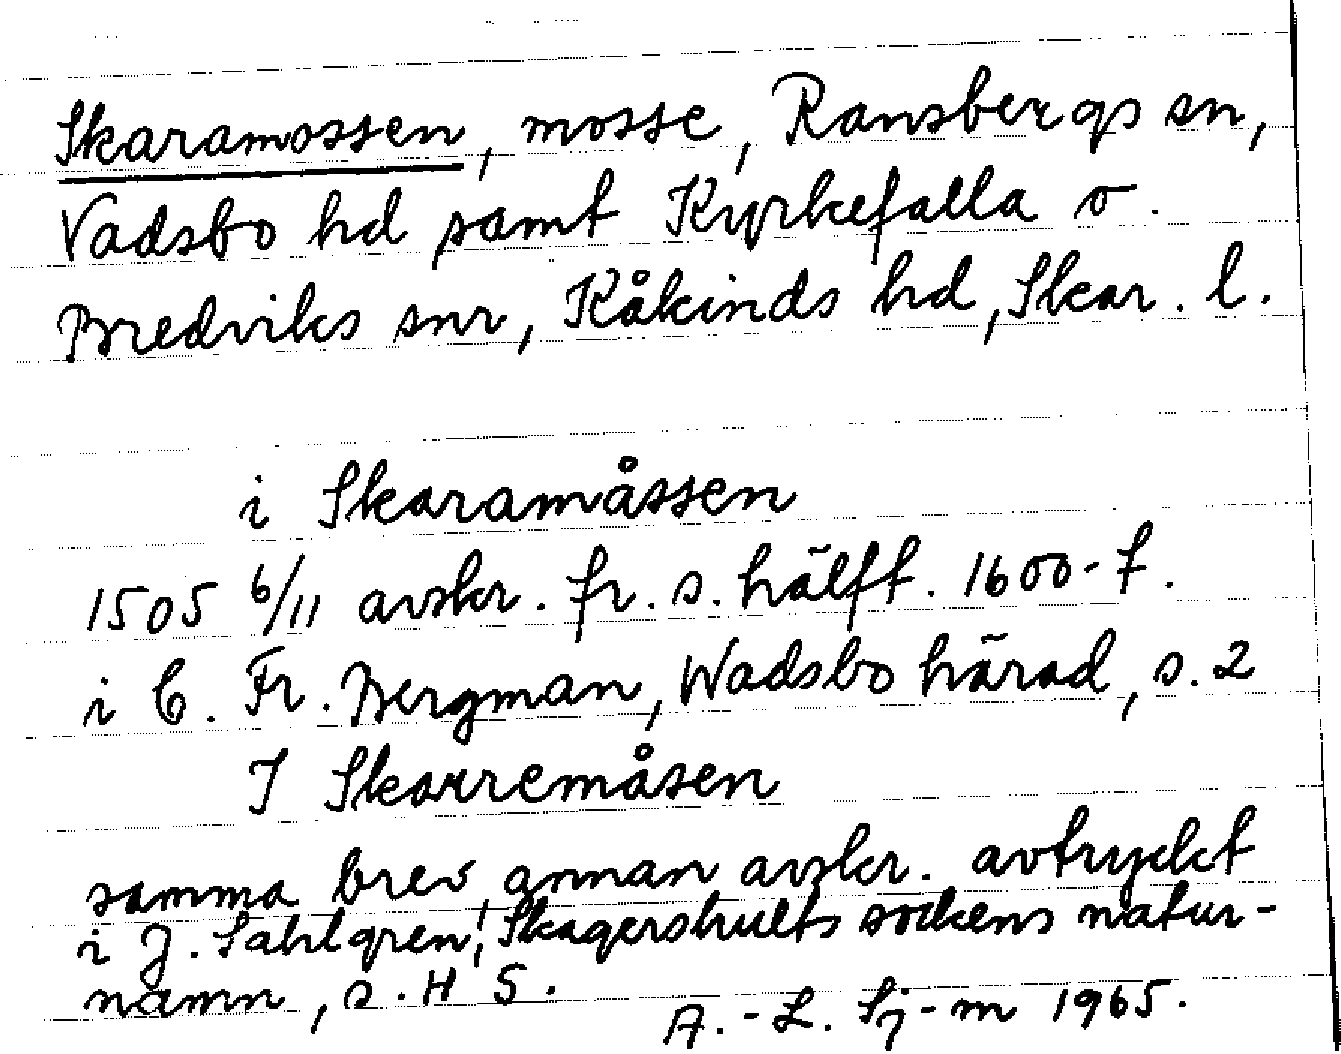 Skaramossen, mosse, Ransbergs sn,
Vadsbo hd samt Kyrkefalla o.
Bredviks snr, Kåkinds hd, Skar. l.
i Skaramåssen
1505 6/11 avskr. fr. s. hälft. 1600-t.
i C. Fr. Bergman, Wadsbo härad, s. 2
I Skarremåsen
samma brev, annan avskr. avtryckt
i J. Sahlgren, Skagershults sockens natur-
namn, s. H S.
A.-L. Sj-m 1965.